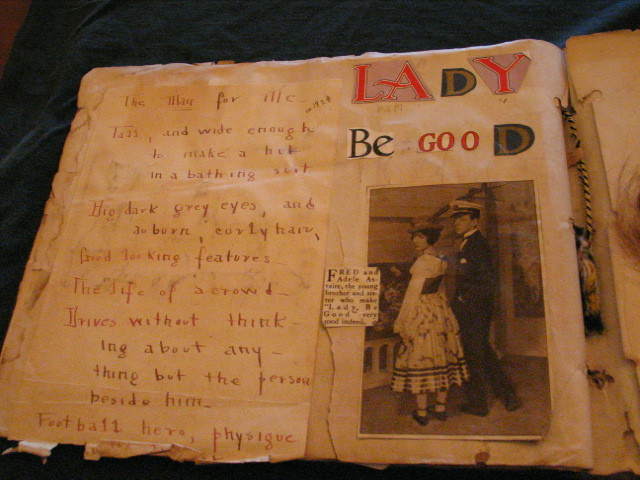 The Man for Me -
Tall, and wide enough
to make a hit
in a bathing suit
Big dark grey eyes, and
auburn, curly hair,
Good looking features
The life of a crowd -
Drives without think -
ing about any -
thing but the person
beside him -
Football hero, physique
LADY
Be GOOD
FRED and
Adele As-
taire, the young
brother and sis-
ter who make
"Lady, Be
Good" very
good indeed.